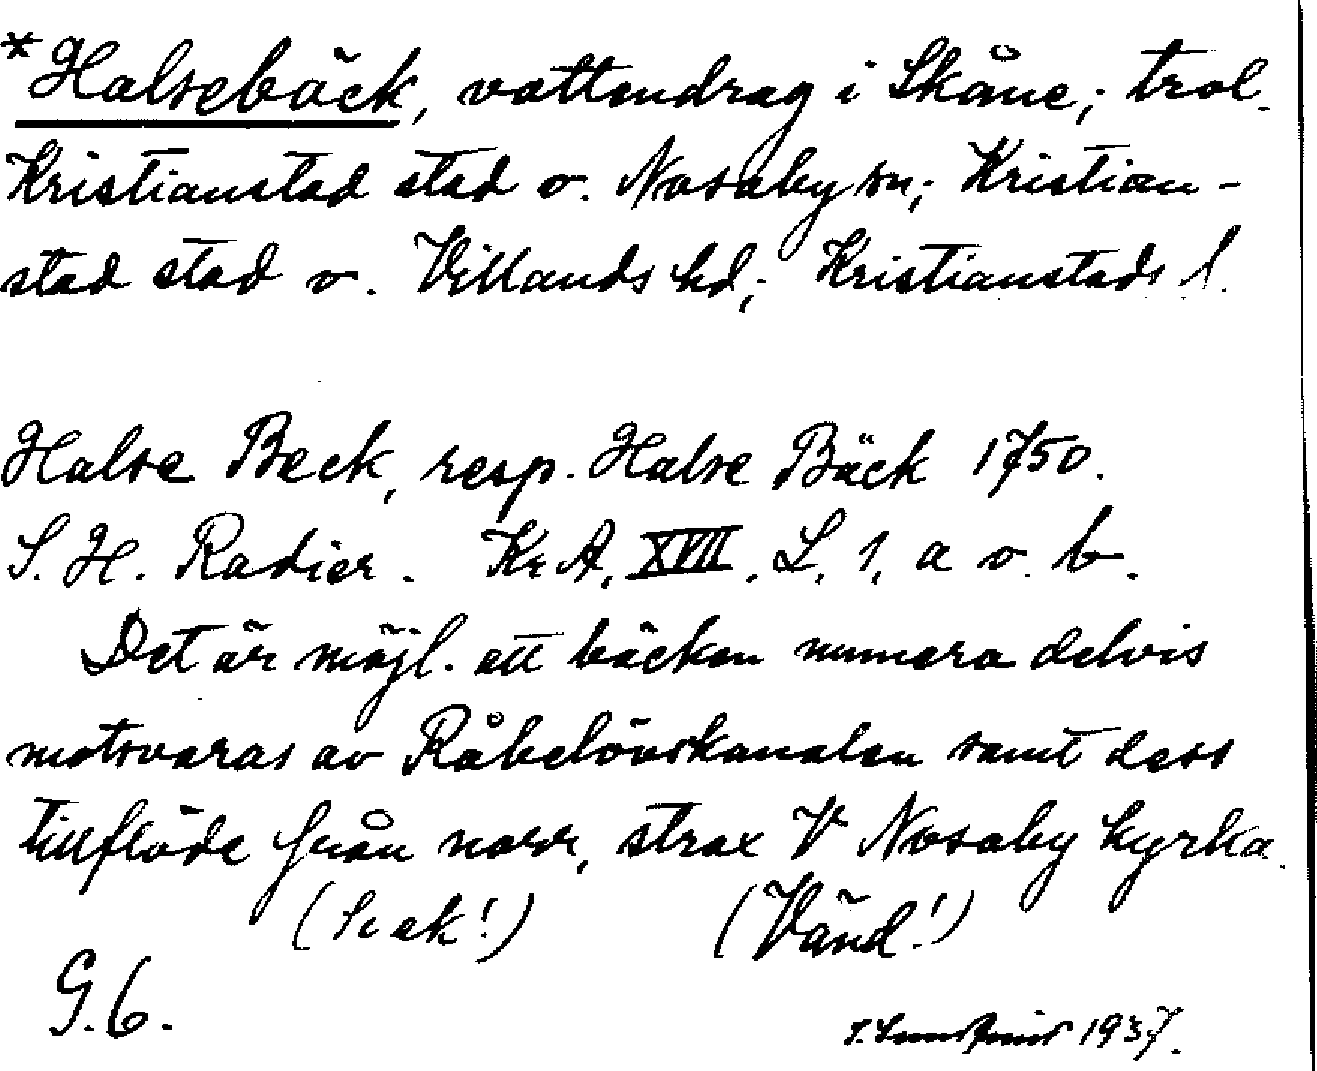 *Halsebäck, vattendrag i Skåne; trol.
Kristianstad stad o. Nosaby sn; Kristian-
stad stad o. Villands hd; Kristianstads l.
Halse Beck, resp. Halse Bäck 1750.
S. H. Radier. Kr A, XVII, L, 1, a o. b.
Det är möjl. att bäcken numera delvis
motsvaras av Råbelövskanalen samt dess
tillflöde från norr, strax V Nosaby kyrka.
(Se ek!) (Vänd!)
G. 6.
1937.